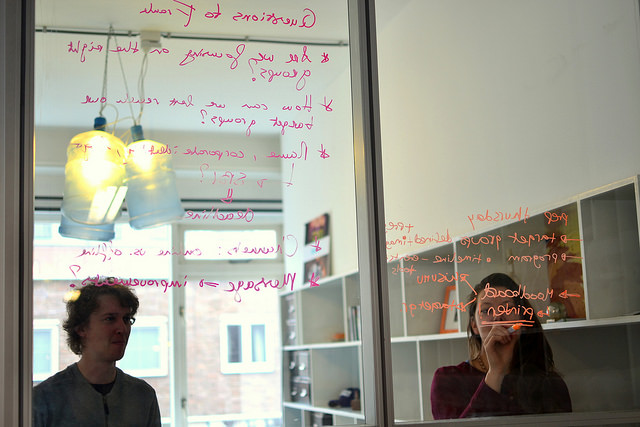 Questions to
* Are we focusing on the right
groups?
* How can we best reach our
target groups?
* Name, corporate identity
Deadline
* Channels: online vs. offline
* Message → improvements?
prep thursday
→ target group defined
→ program + timeline
→ Moodboard
→ printen